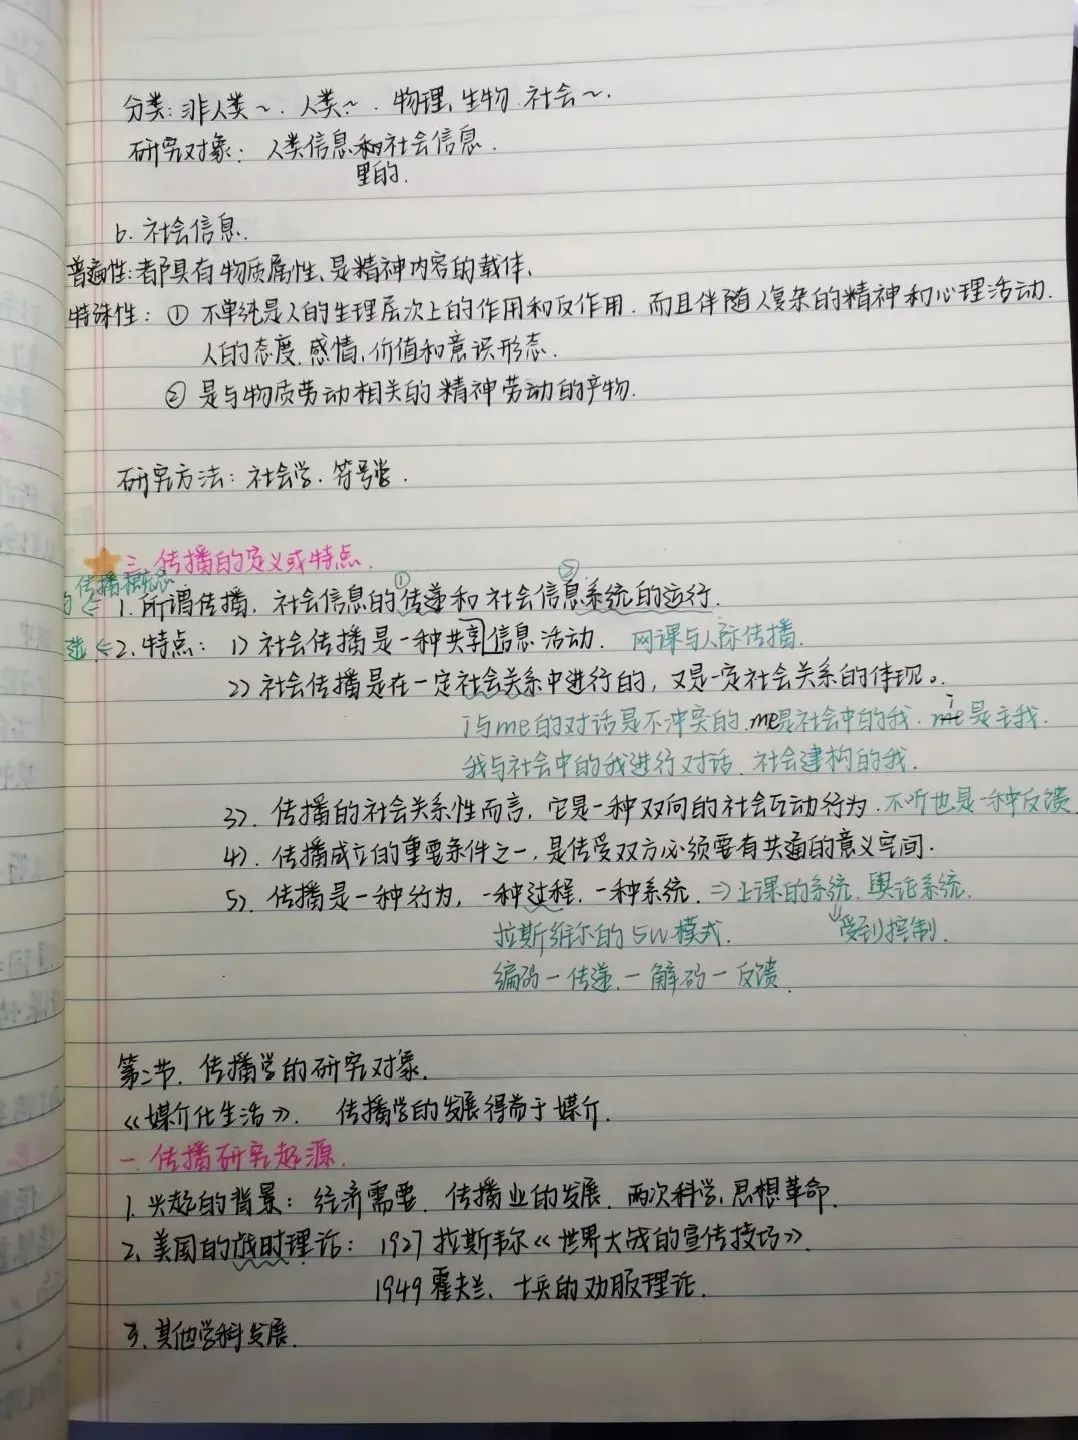 分类：非人类～．人类～．物理、生物、社会～．
研究对象：人类信息和社会信息．
里的．
b．社会信息．
普遍性：都具有物质属性、是精神内容的载体、
特殊性：① 不单纯是人的生理层次上的作用和反作用．而且伴随人复杂的精神和心理活动．
人的态度、感情、价值和意识形态．
② 是与物质劳动相关的精神劳动的产物．
研究方法：社会学．符号学．
三、传播的定义或特点．
传播概念
① ②
1．所谓传播，社会信息的传递和社会信息系统的运行．
2、特点：1）社会传播是一种共享信息活动．网课与人际传播．
2）社会传播是在一定社会关系中进行的，又是一定社会关系的体现。
i与me的对话是不冲突的．me是社会中的我．i是主我．
我与社会中的我进行对话、社会建构的我．
3）．传播的社会关系性而言，它是一种双向的社会互动行为．不听也是一种反馈
4）．传播成立的重要条件之一，是传受双方必须要有共通的意义空间．
5）．传播是一种行为，一种过程．一种系统．⇒上课的系统、舆论系统．
拉斯维尔的5W模式． 受到控制．
编码－传递．－解码－反馈．
第二节．传播学的研究对象．
《媒介化生活》． 传播学的发展得益于媒介．
一．传播研究起源．
1．兴起的背景：经济需要．传播业的发展．两次科学、思想革命．
2、美国的战时理论：1927 拉斯韦尔《世界大战的宣传技巧》．
1949 霍夫兰、士兵的劝服理论．
3．其他学科发展．